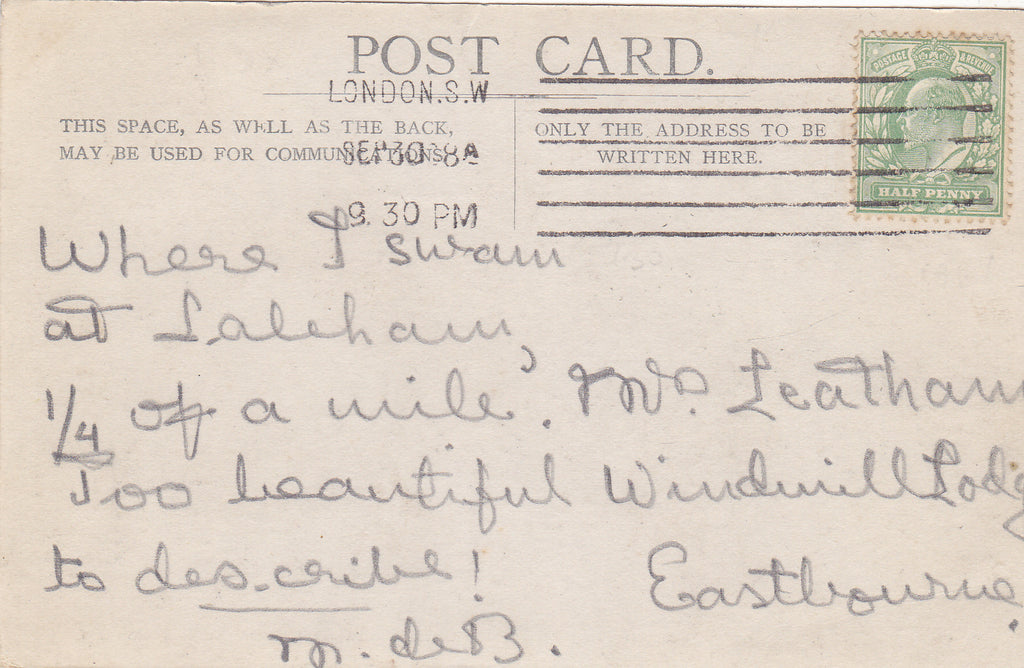 POST CARD.
LONDON.S.W
SEP 30 8A
9.30 PM
THIS SPACE, AS WELL AS THE BACK,
MAY BE USED FOR COMMUNICATIONS.
ONLY THE ADDRESS TO BE
WRITTEN HERE.
POSTAGE & REVENUE
HALF PENNY
Where I swam
at Laleham,
1/4 of a mile.
Too beautiful
to describe!
M. de B.
Mrs. Leatham
Windmill Lodg
Eastbourne.